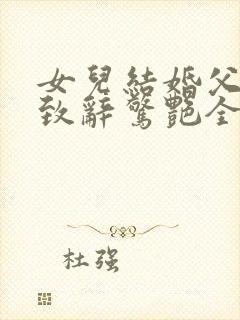 女兒結婚父
致辭驚艷全
杜强